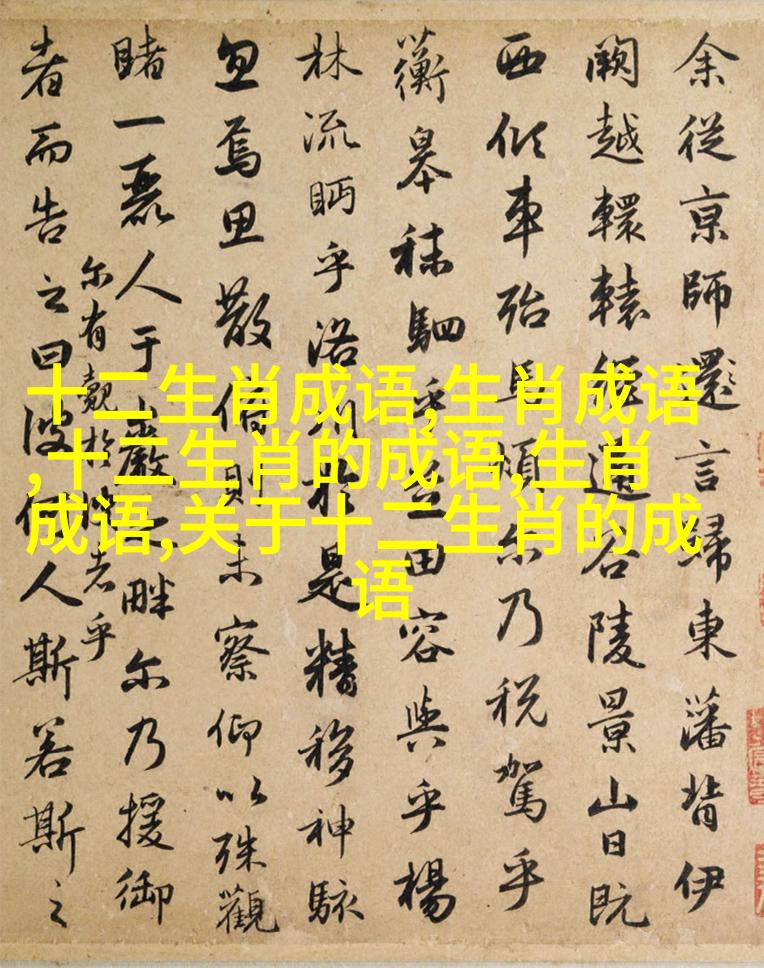 余從京師還言歸東藩背伊
闕越轘轅經通谷陵景山日既
西傾車殆馬煩尔乃税駕乎
蘅皋秣駟乎芝田容與乎楊
林流眄乎洛川於是精移神駭
忽焉思散俯則未察仰以殊觀
睹一麗人于巖之畔尔乃援御
者而告之曰彼何人斯若斯之
尔有覿於彼者乎
十二生肖成语,生肖成语
,十二生肖的成语,生肖
成语,关于十二生肖的成
语